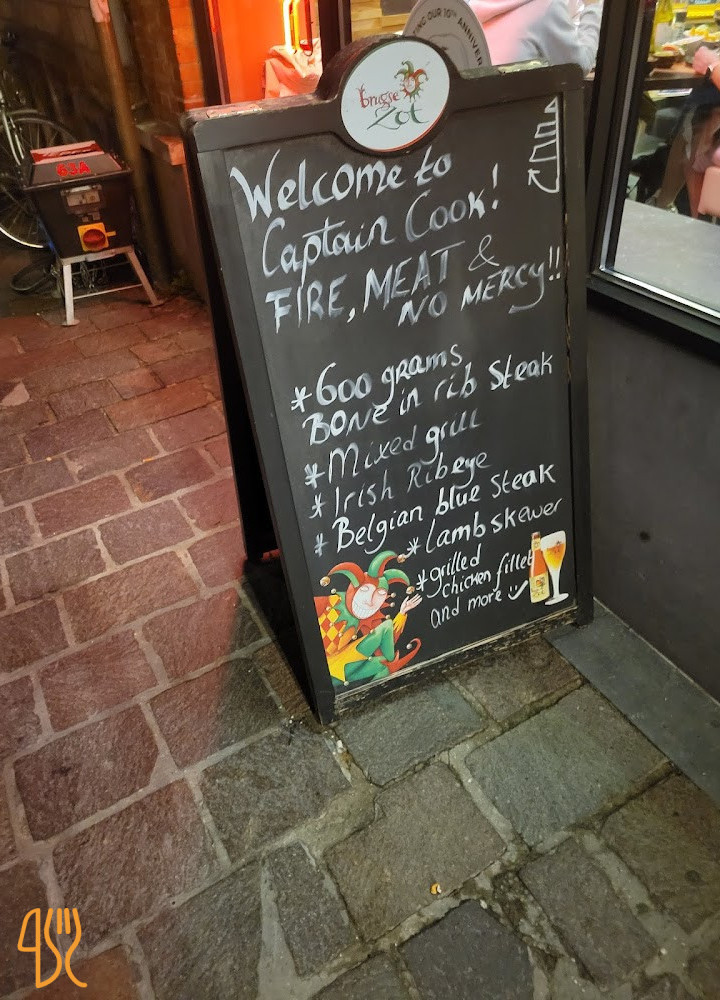 NG OUR 10TH ANNIVER
brugse
Zot
Welcome to
Captain Cook!
FIRE, MEAT &
NO MERCY!!
*600 grams
BONE in rib Steak
*Mixed grill
*Irish Ribeye
*Belgian blue Steak
*lamb skewer
*grilled
chicken fillet
and more
63A